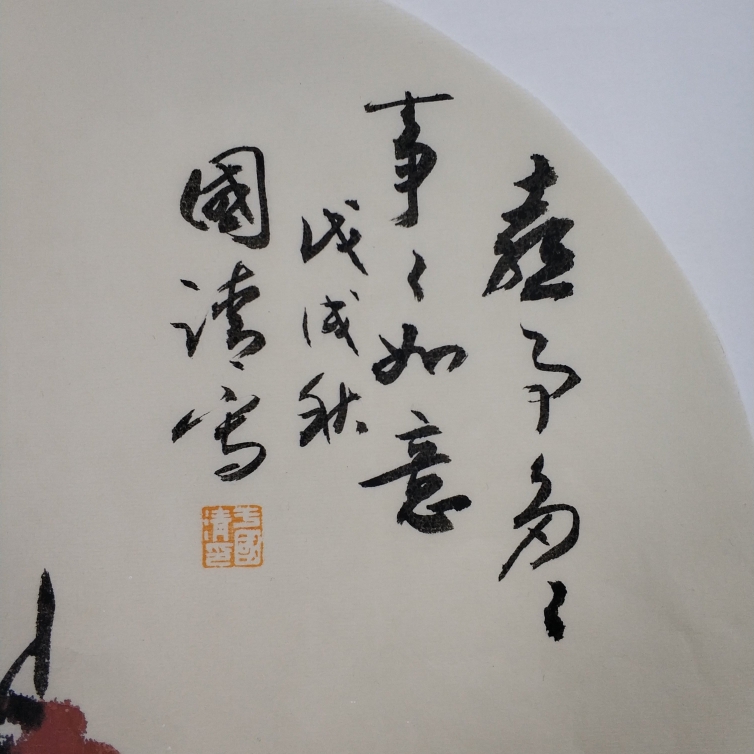 喜事多々
事々如意
戊戌秋
國清寫
國
清印